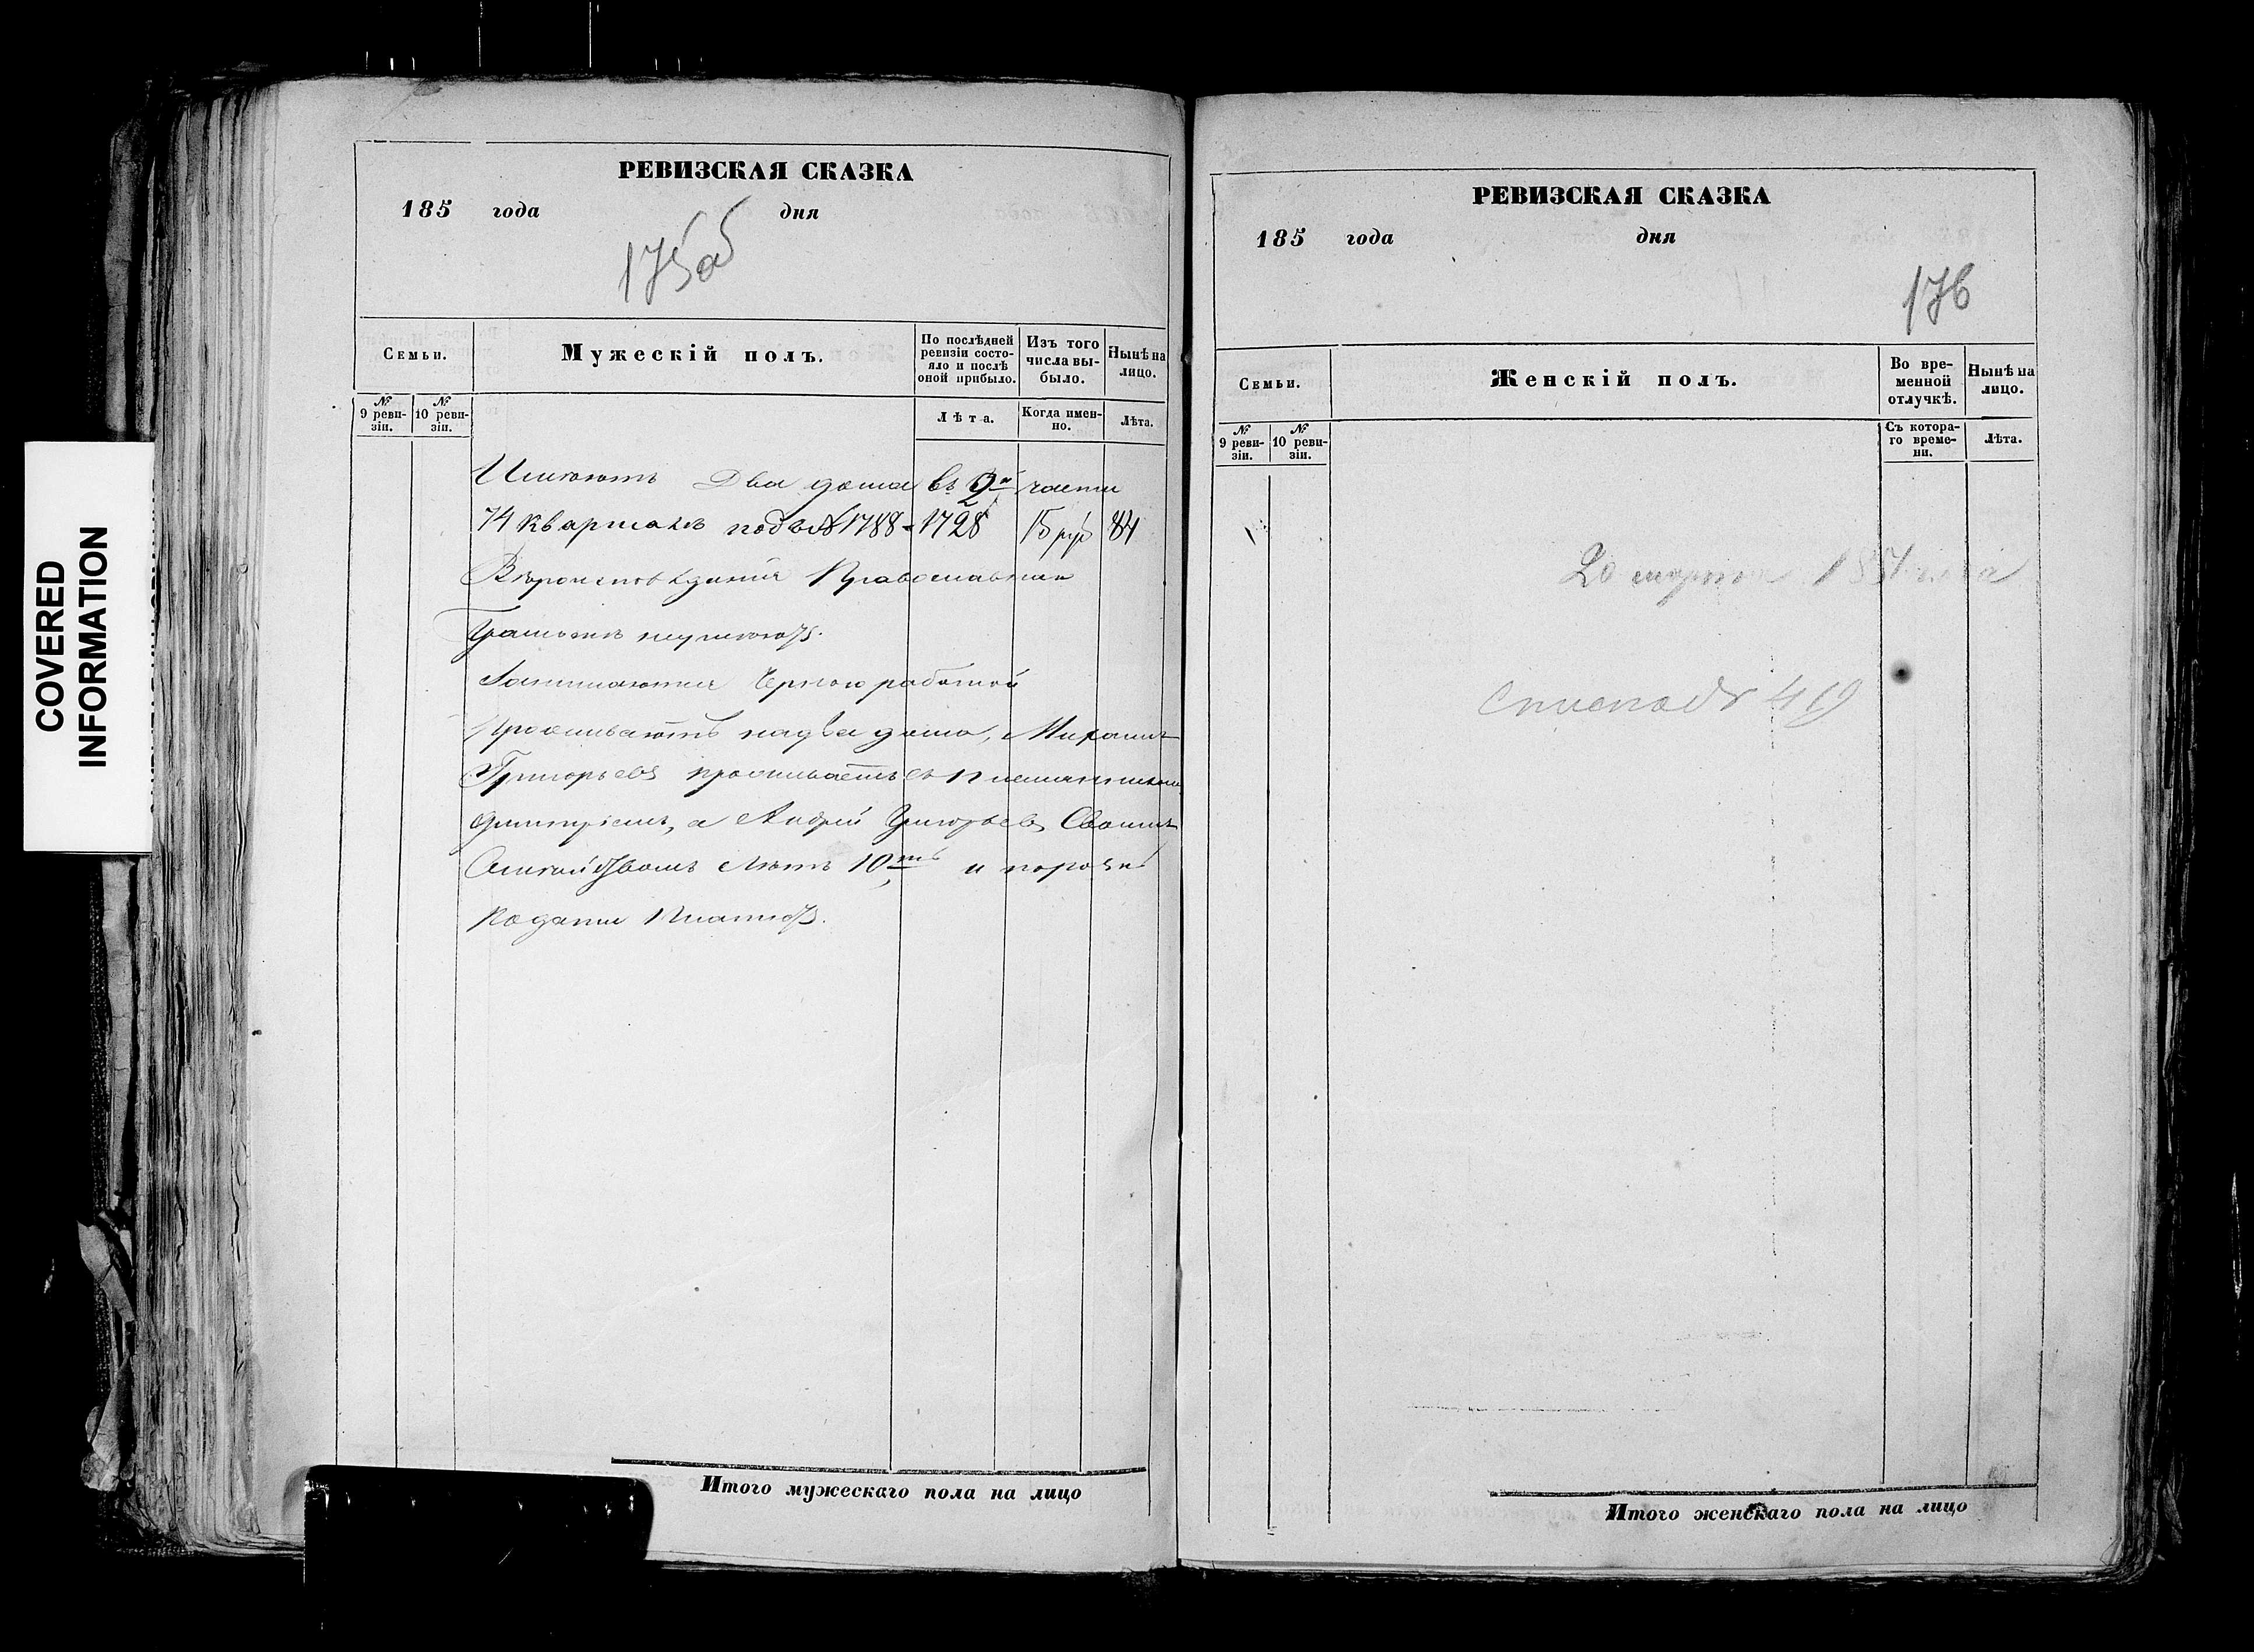 COVERED
INFORMATION
РЕВИЗСКАЯ СКАЗКА
185 года дня
175об
Семьи.
Мужескій полъ.
По послѣдней ревизіи состояло и послѣ оной прибыло.
Изъ того числа выбыло.
Нынѣ на лицо.
№ 9 ревизіи.
№ 10 ревизіи.
Лѣта.
Когда именно.
Лѣта.
Имѣютъ Два дома въ 2й части
74 кварталѣ подъ № 1788 - 1728 15 ру 84
Вѣроисповѣданія Православнаго
Грамотѣ неумѣютъ.
Занимаются Черною работой
Проживаютъ на два дома, Михаилъ
Григорьевъ проживаетъ съ племянникомъ
Дмитріемъ, а Андрей Григорьевъ Своимъ
Семействомъ Лѣтъ 10ть и порознь
Подати Платютъ.
Итого мужескаго пола на лицо
РЕВИЗСКАЯ СКАЗКА
185 года дня
176
Семьи.
Женскій полъ.
Во временной отлучкѣ.
Нынѣ на лицо.
№ 9 ревизіи.
№ 10 ревизіи.
Съ котораго времени.
Лѣта.
20 марта
419
Итого женскаго пола на лицо